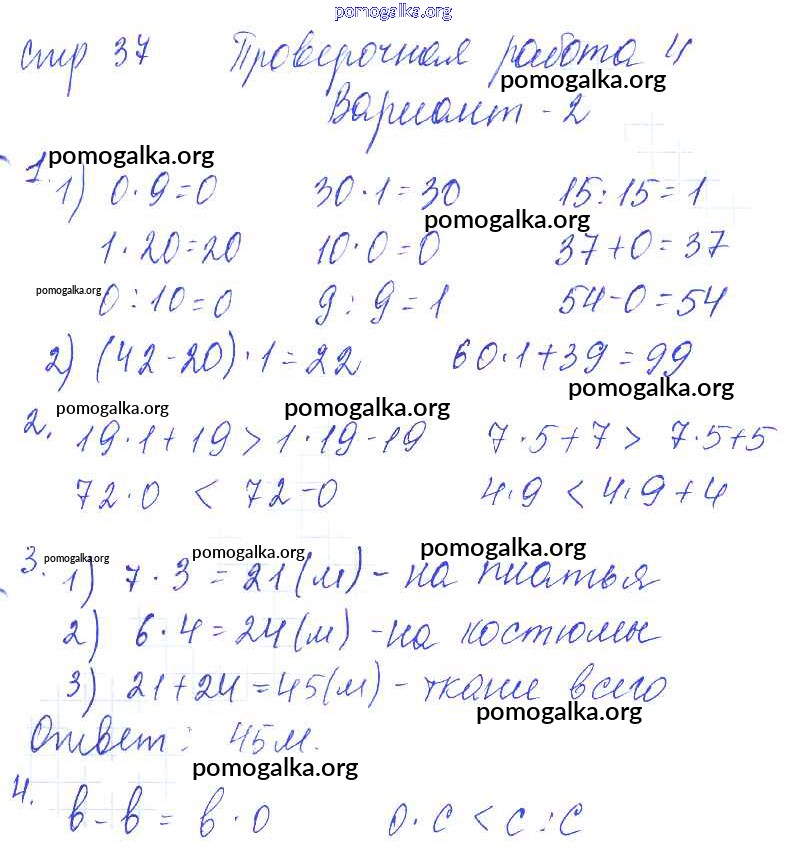 pomogalka.org
стр 37 Проверочная работа 4
pomogalka.org
Вариант - 2
pomogalka.org
1. 1) 0 · 9 = 0 30 · 1 = 30 15 : 15 = 1
pomogalka.org
1 · 20 = 20 10 · 0 = 0 37 + 0 = 37
pomogalka.org
0 : 10 = 0 9 : 9 = 1 54 - 0 = 54
2) (42 - 20) · 1 = 22 60 · 1 + 39 = 99
pomogalka.org
pomogalka.org pomogalka.org
2. 19 · 1 + 19 > 1 · 19 - 19 7 · 5 + 7 > 7 · 5 + 5
72 · 0 < 72 - 0 4 · 9 < 4 · 9 + 4
pomogalka.org pomogalka.org pomogalka.org
3. 1) 7 · 3 = 21 (м) - на платья
2) 6 · 4 = 24 (м) - на костюмы
3) 21 + 24 = 45 (м) - ткани всего
pomogalka.org
Ответ: 45 м.
pomogalka.org
4. в - в = в · 0 0 · с < с : с